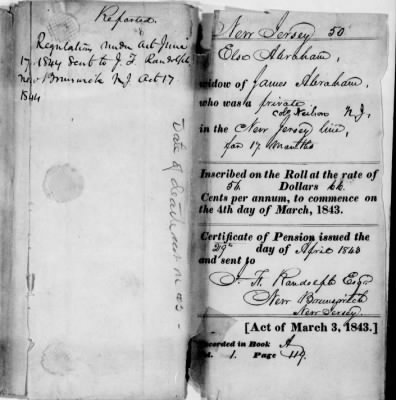 Reported.
Regulation under Act June
17. 1844 sent to J. F. Randolph
New Brunswick N J Act 17
1844
Date of death not in
New Jersey 50
Abraham,
widow of James Abraham,
who was a private
Col Neilson N. J.
in the New Jersey line,
for 17 months
Inscribed on the Roll at the rate of
56 Dollars 66
Cents per annum, to commence on
the 4th day of March, 1843.
Certificate of Pension issued the
29th day of April 1843
and sent to
J. F. Randolph Esqr
New Brunswick
New Jersey
[Act of March 3, 1843.]
Recorded in Book A
Vol. 1. Page 119.